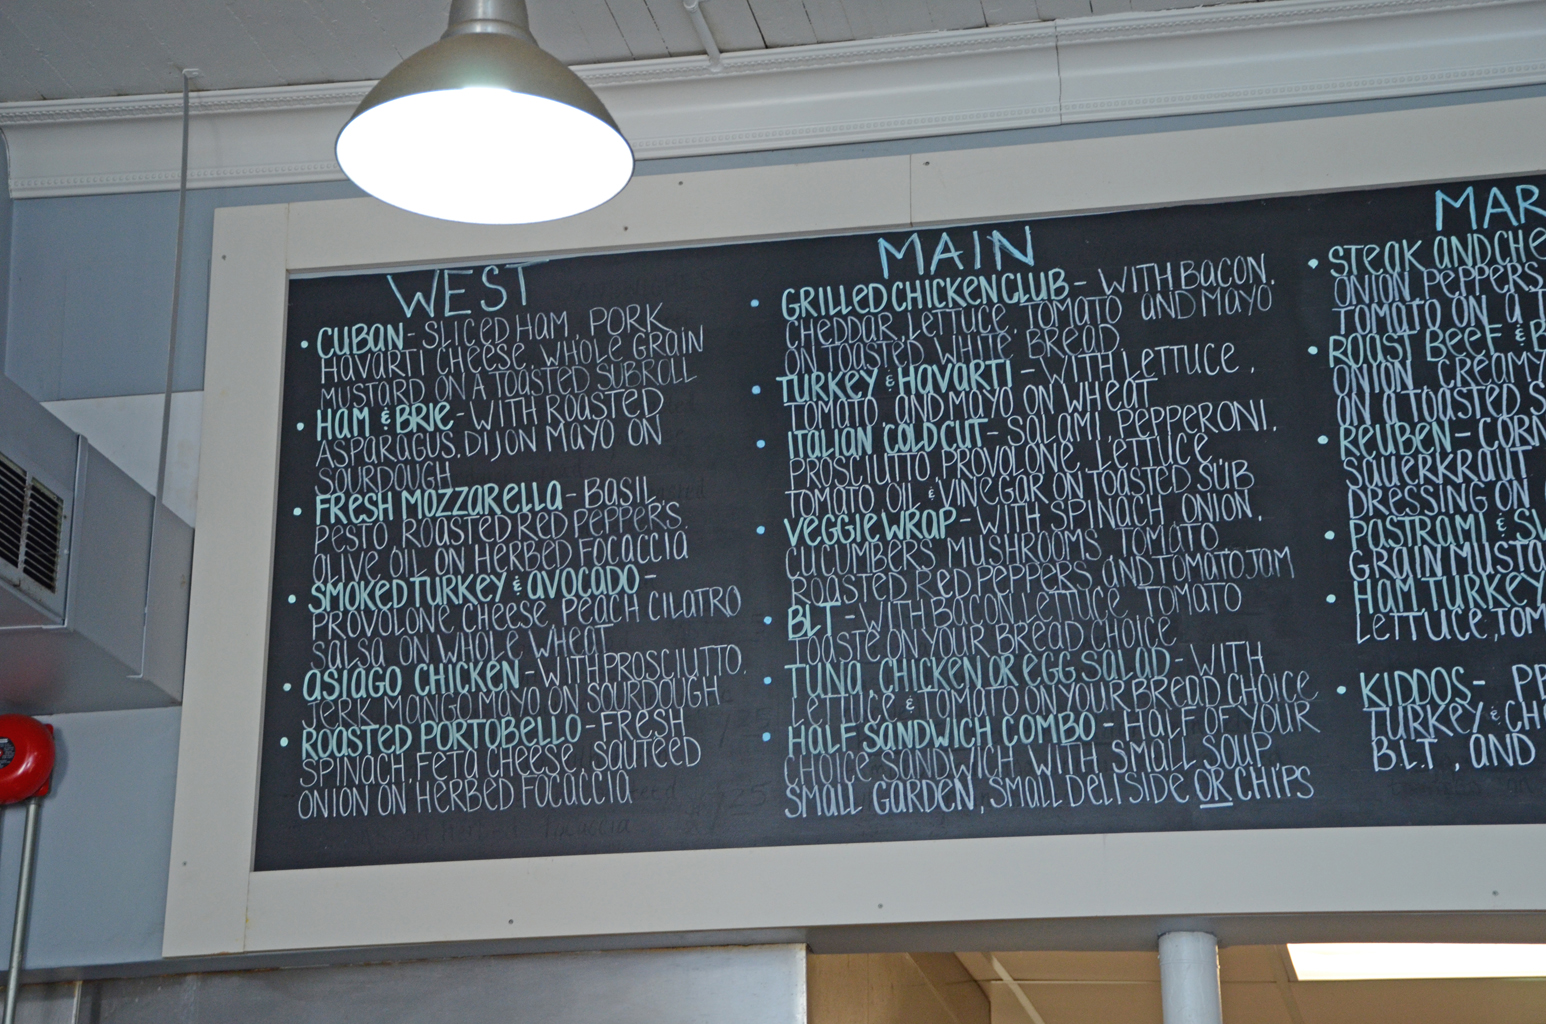 WEST
• CUBAN - SLICED HAM, PORK
HAVARTI CHEESE, WHOLE GRAIN
MUSTARD ON A TOASTED SUBROLL
• HAM & BRIE - WITH ROASTED
ASPARAGUS, DIJON MAYO ON
SOURDOUGH
• FRESH MOZZARELLA - BASIL
PESTO ROASTED RED PEPPERS,
OLIVE OIL ON HERBED FOCACCIA
• SMOKED TURKEY & AVOCADO -
PROVOLONE CHEESE PEACH CILATRO
SALSA ON WHOLE WHEAT
• ASIAGO CHICKEN - WITH PROSCIUTTO,
JERK MANGO MAYO ON SOURDOUGH
• ROASTED PORTOBELLO - FRESH
SPINACH, FETA CHEESE, SAUTEED
ONION ON HERBED FOCACCIA
MAIN
• GRILLED CHICKEN CLUB - WITH BACON,
CHEDDAR, LETTUCE, TOMATO AND MAYO
ON TOASTED WHITE BREAD
• TURKEY & HAVARTI - WITH LETTUCE,
TOMATO AND MAYO ON WHEAT
• ITALIAN COLD CUT - SALAMI, PEPPERONI,
PROSCIUTTO, PROVOLONE, LETTUCE,
TOMATO OIL & VINEGAR ON TOASTED SUB
• VEGGIE WRAP - WITH SPINACH, ONION,
CUCUMBERS, MUSHROOMS, TOMATO
ROASTED RED PEPPERS AND TOMATO JAM
• BLT - WITH BACON LETTUCE TOMATO
TOASTE ON YOUR BREAD CHOICE
• TUNA, CHICKEN OR EGG SALAD - WITH
LETTUCE & TOMATO ON YOUR BREAD CHOICE
• HALF SANDWICH COMBO - HALF OF YOUR
CHOICE SANDWICH WITH SMALL SOUP,
SMALL GARDEN, SMALL DELI SIDE OR CHIPS
MAR
• STEAK AND CHE
ONION PEPPERS
TOMATO ON A T
• ROAST BEEF & B
ONION, CREAMY
ON A TOASTED S
• REUBEN - CORN
SAUERKRAUT
DRESSING ON
• PASTRAMI & SW
GRAIN MUSTA
• HAM TURKEY
LETTUCE, TOM
• KIDDOS - PB
TURKEY & CH
B.L.T, AND